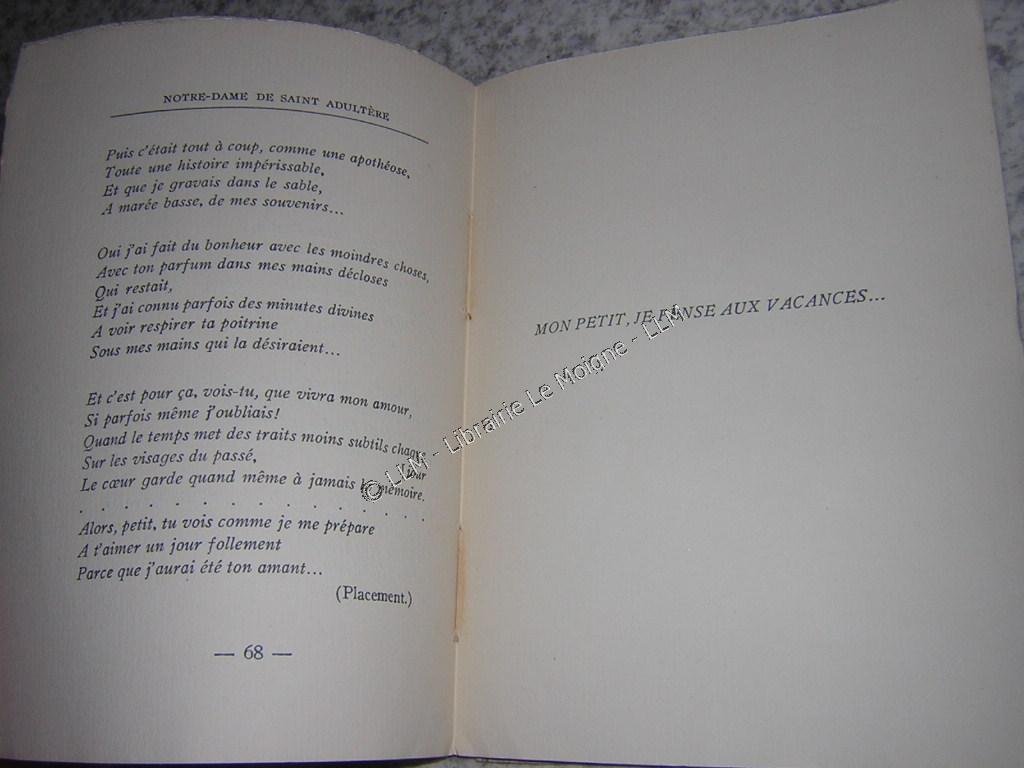 NOTRE-DAME DE SAINT ADULTÈRE
Puis c'était tout à coup, comme une apothéose,
Toute une histoire impérissable,
Et que je gravais dans le sable,
A marée basse, de mes souvenirs...
Oui j'ai fait du bonheur avec les moindres choses,
Avec ton parfum dans mes mains décloses
Qui restait,
Et j'ai connu parfois des minutes divines
A voir respirer ta poitrine
Sous mes mains qui la désiraient...
Et c'est pour ça, vois-tu, que vivra mon amour,
Si parfois même j'oubliais!
Quand le temps met des traits moins subtils chaque
jour
Sur les visages du passé,
Le cœur garde quand même à jamais la mémoire.
. . . . . . . . . . . . . . .
Alors, petit, tu vois comme je me prépare
A t'aimer un jour follement
Parce que j'aurai été ton amant...
(Placement.)
— 68 —
MON PETIT, JE PENSE AUX VACANCES...
© LLM - Librairie Le Moigne - LLM